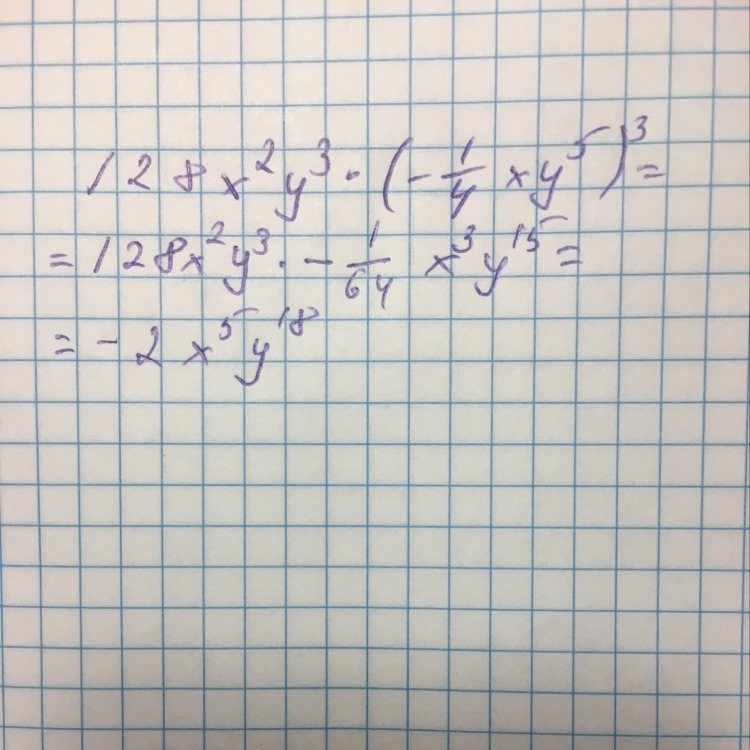 128x²y³ · (-1/4 xy⁵)³ =
= 128x²y³ · - 1/64 x³y¹⁵ =
= - 2 x⁵y¹⁸